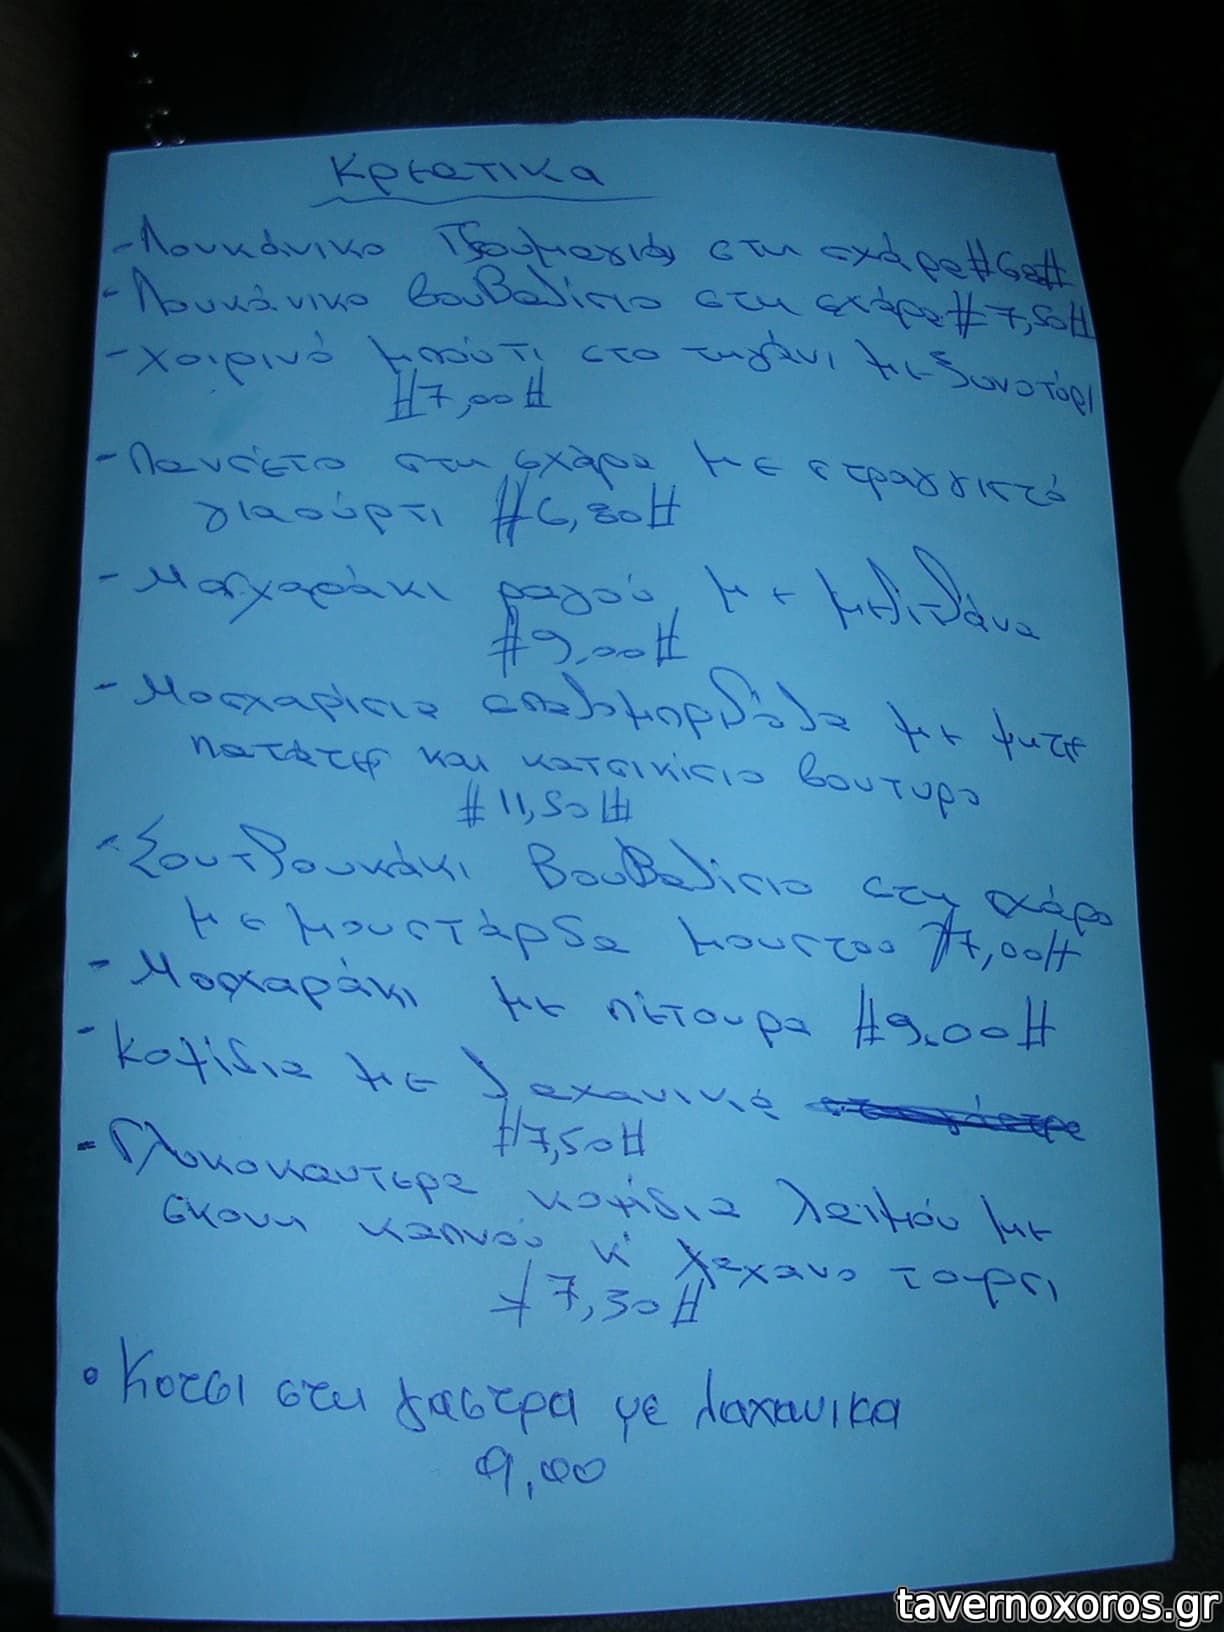 Κρεατικα
- Λουκάνικο Τζουμαγιάς στη σχάρα #6,80#
- Λουκάνικο βουβαλίσιο στη σχάρα #7,50#
- Χοιρινό μπούτι στο τηγάνι με ξυνοτύρι
#7,00#
- Πανσέτα στη σχάρα με στραγγιστό
γιαούρτι #6,80#
- Μοσχαράκι ραγού με μελιτζάνα
#9,00#
- Μοσχαρίσια σπαλομπριζόλα με ψητές
πατάτες και κατσικίσιο βουτυρο
#11,50#
- Σουτζουκάκι βουβαλίσιο στη σχάρα
με μουστάρδα μουστου #7,00#
- Μοσχαράκι με πίτουρα #9,00#
- Κοψίδια με λαχανικά
#7,50#
- Γλυκοκαυτερα κοψίδια λαιμού με
σκονη καπνού κ' λαχανο τουρσι
#7,30#
• Κοτσι στη γαστρα με λαχανικα
9,00
tavernoxoros.gr